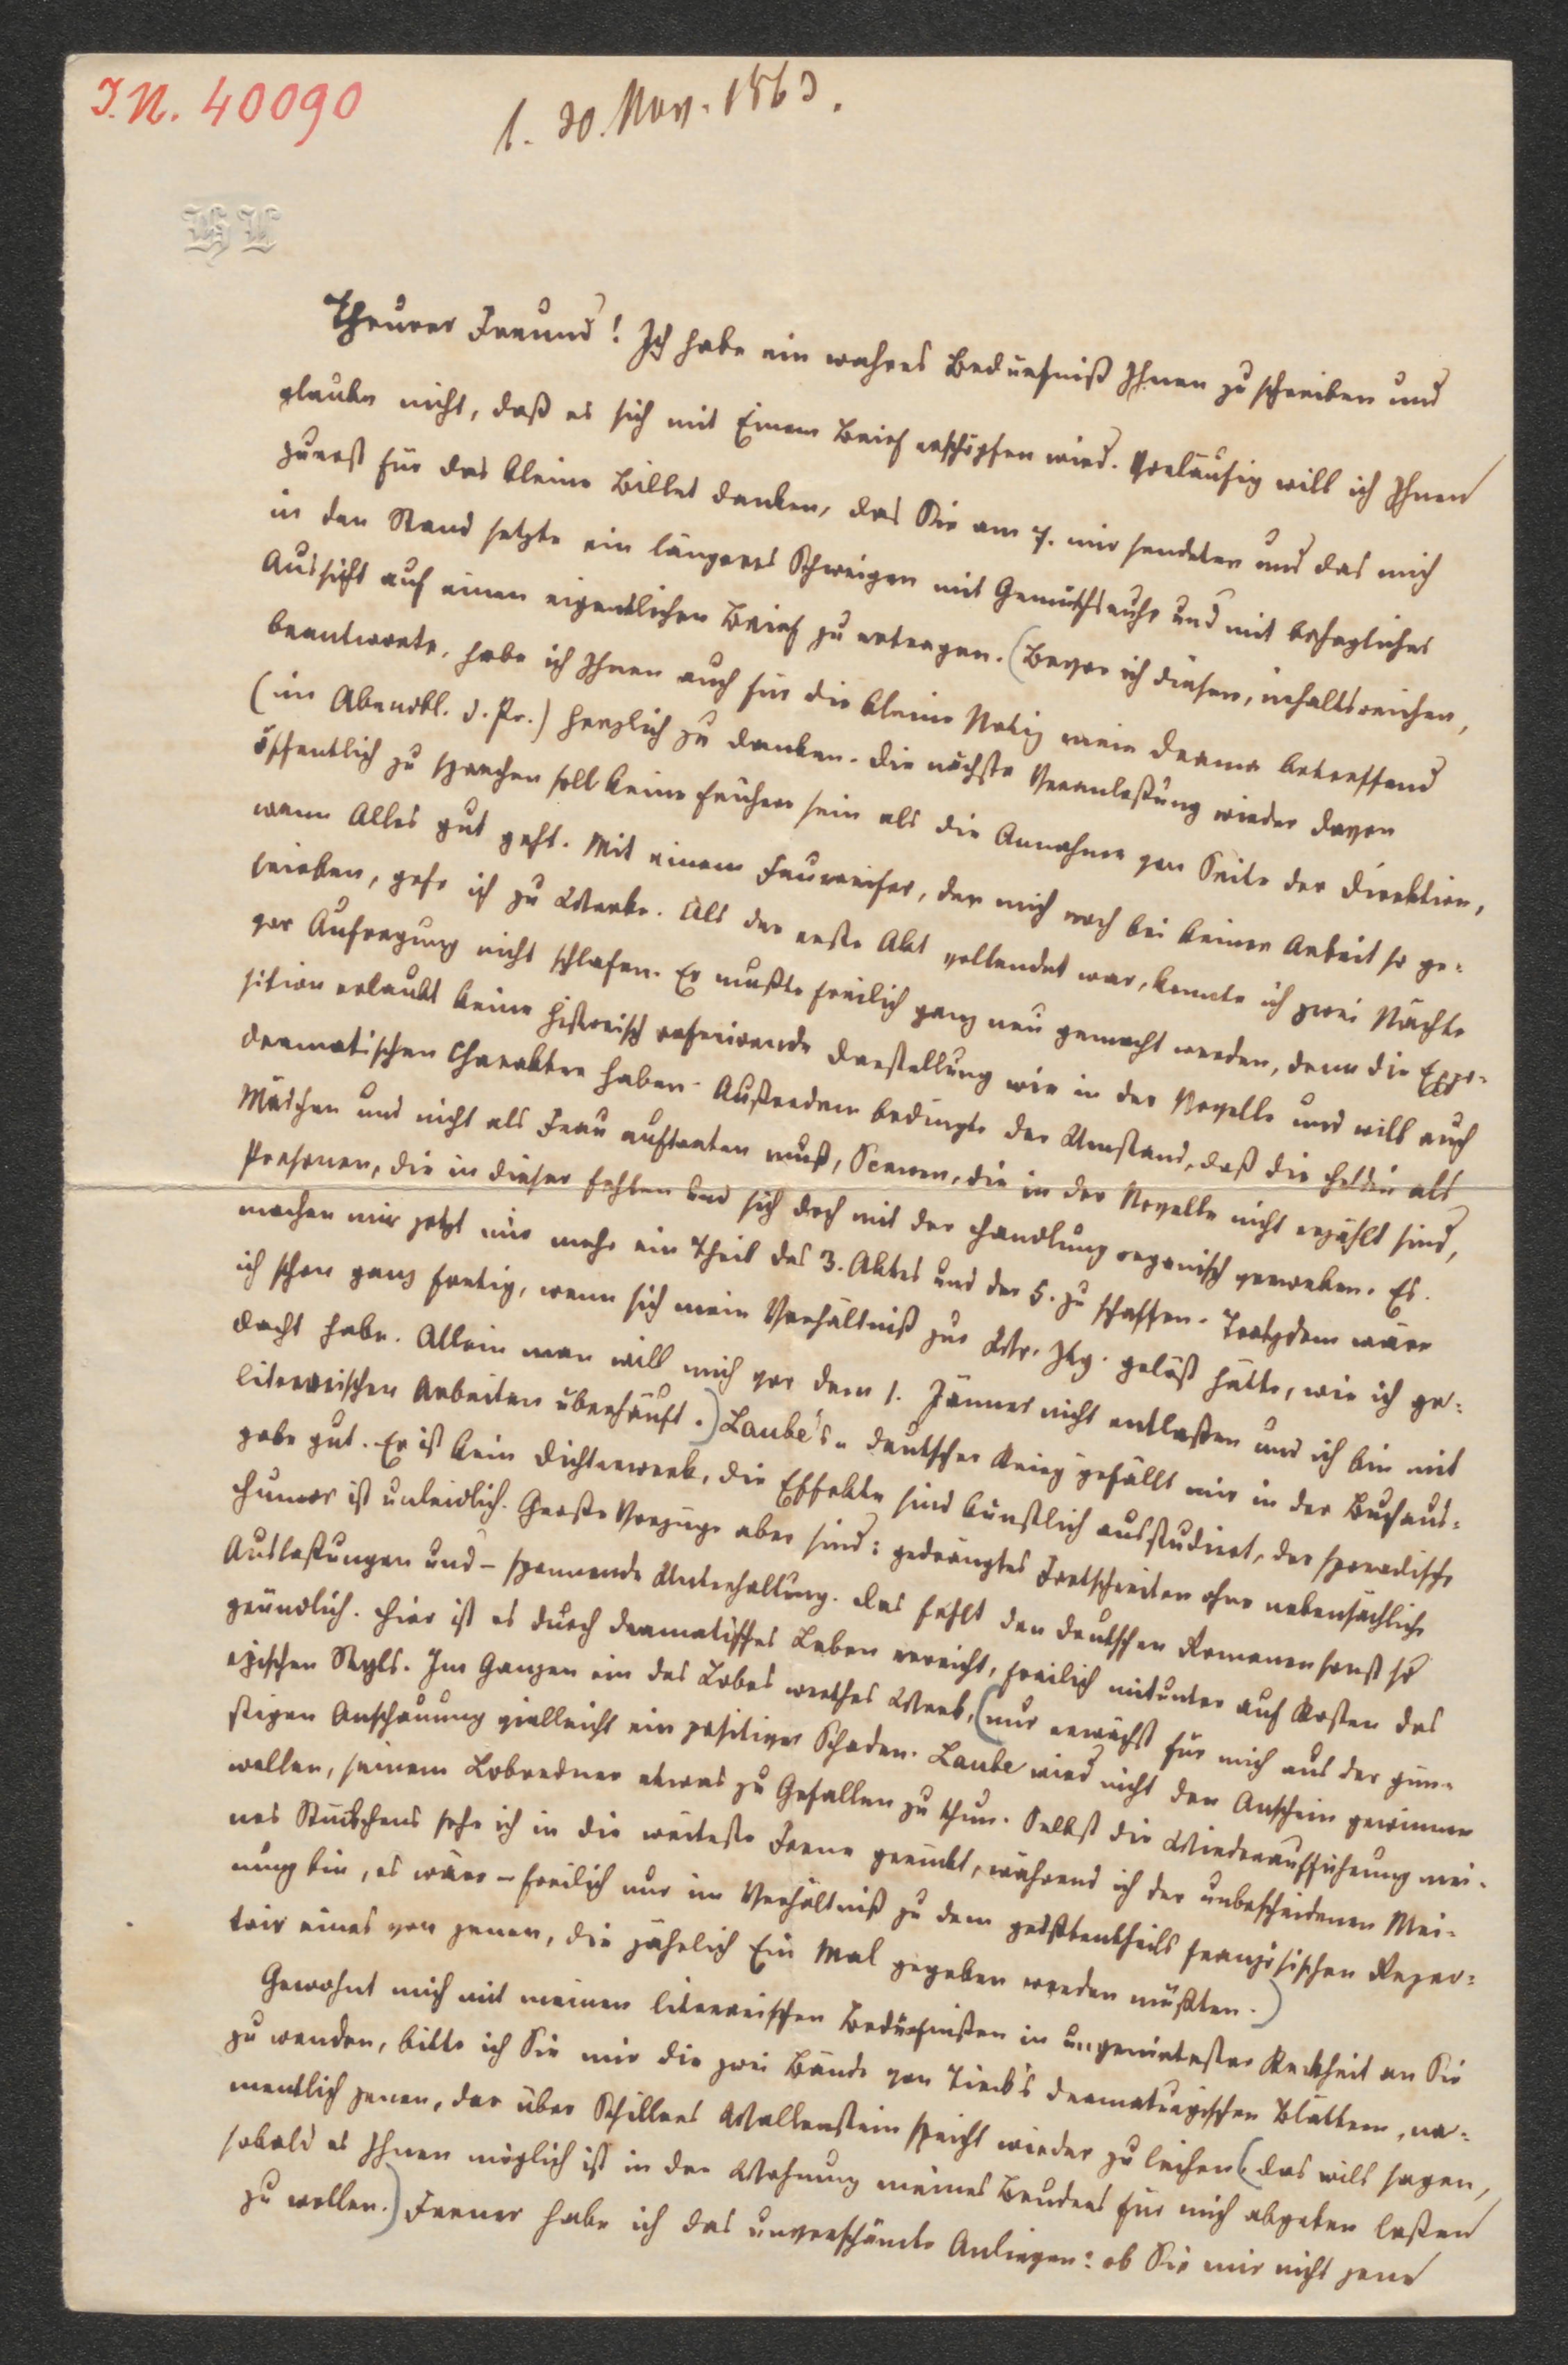 I.N. 40090
1. 30. Nov. 1863.
HL
Theurer Freund! Ich habe ein wahres Bedürfniß Ihnen zu schreiben und
glaube nicht, daß es sich mit Einem Brief erschöpfen wird. Vorläufig will ich Ihnen
zuerst für das kleine Billet danken, das Sie am 7. mir sendeten und das mich
in den Stand setzte ein längeres Schweigen mit Gemüthsruhe und mit behaglicher
Aussicht auf einen eigentlichen Brief zu ertragen. (Bevor ich diesen, inhaltsreichen,
beantworte, habe ich Ihnen auch für die kleine Notiz mein Drama betreffend
(im Abendbl. d. Pr.) herzlich zu danken. Die nächste Veranlaßung wieder davon
öffentlich zu sprechen soll keine frühere sein als die Annahme von Seite der Direktion,
wenn Alles gut geht. Mit einem Feuereifer, der mich noch bei keiner Arbeit so ge-
trieben, gehe ich zu Werke. Als der erste Akt vollendet war, konnte ich zwei Nächte
vor Aufregung nicht schlafen. Er mußte freilich ganz neu gemacht werden, denn die Expo-
sition erlaubt keine historisch referirende Darstellung wie in der Novelle und will auch
dramatischen Charakter haben. Außerdem bedingte der Umstand, daß die Heldin als
Mädchen und nicht als Frau auftreten muß, Scenen, die in der Novelle nicht erzählt sind,
Personen, die in dieser fehlen und sich doch mit der Handlung organisch verweben. Es
machen mir jetzt nur mehr ein Theil des 3. Aktes und der 5. zu schaffen. Trotzdem wäre
ich schon ganz fertig, wenn sich mein Verhältniß zur Wr. Ztg. gelöst hätte, wie ich ge-
dacht habe. Allein man will mich vor dem 1. Jänner nicht entlaßen und ich bin mit
literarischen Arbeiten überhäuft.) Laube's „deutscher Krieg" gefällt mir in der Buchaus-
gabe gut. Er ist kein Dichterwerk, die Effekte sind künstlich ausstudirt, der sporadische
Humor ist unleidlich. Große Vorzüge aber sind: gedrängtes Fortschreiten ohne nebensächliche
Auslaßungen und – spannende Unterhaltung. Das fehlt den deutschen Romanen sonst so
gründlich. Hier ist es durch dramatisches Leben erreicht, freilich mitunter auf Kosten des
epischen Styls. Im Ganzen ein des Lobes werthes Werk, (nur erwächst für mich aus der gün-
stigen Anschauung vielleicht ein positiver Schaden. Laube wird nicht den Anschein gewinnen
wollen, seinem Lobredner etwas zu Gefallen zu thun. Selbst die Wiederaufführung mei-
nes Stückchens sehe ich in die weiteste Ferne gerückt, während ich der unbescheidenen Mei-
nung bin, es wäre – freilich nur im Verhältniß zu dem größtentheils französischen Reper-
toir eines von jenen, die jährlich Ein Mal gegeben werden müßten.)
Gewohnt mich mit meinen literarischen Bedürfnißen in ungenirtester Keckheit an Sie
zu wenden, bitte ich Sie mir die zwei Bände von Tieck's dramaturgischen Blättern, na-
mentlich jenen, der über Schillers Wallenstein spricht wieder zu leihen (das will sagen,
sobald es Ihnen möglich ist in der Wohnung meines Bruders für mich abgeben laßen
zu wollen.) Ferner habe ich das unverschämte Anliegen: ob Sie mir nicht jene